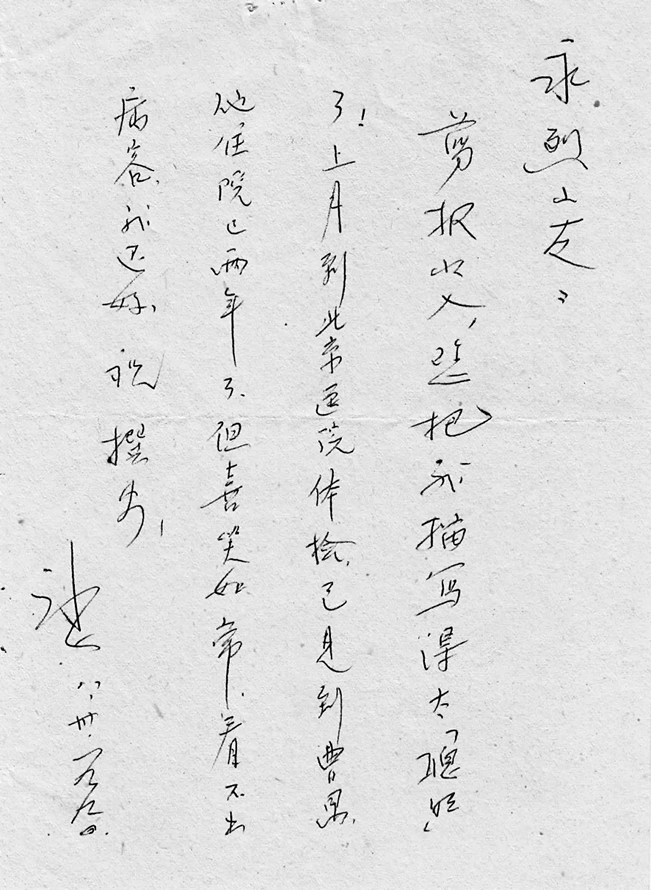 永烈小友：
剪报收入，把我描写得太聪明
了！上月到北京医院体检，已见到曹禺，
他住院已两年了，但喜笑如常，看不出
病容，我还好，祝撰安！
八、卅、一九九〇